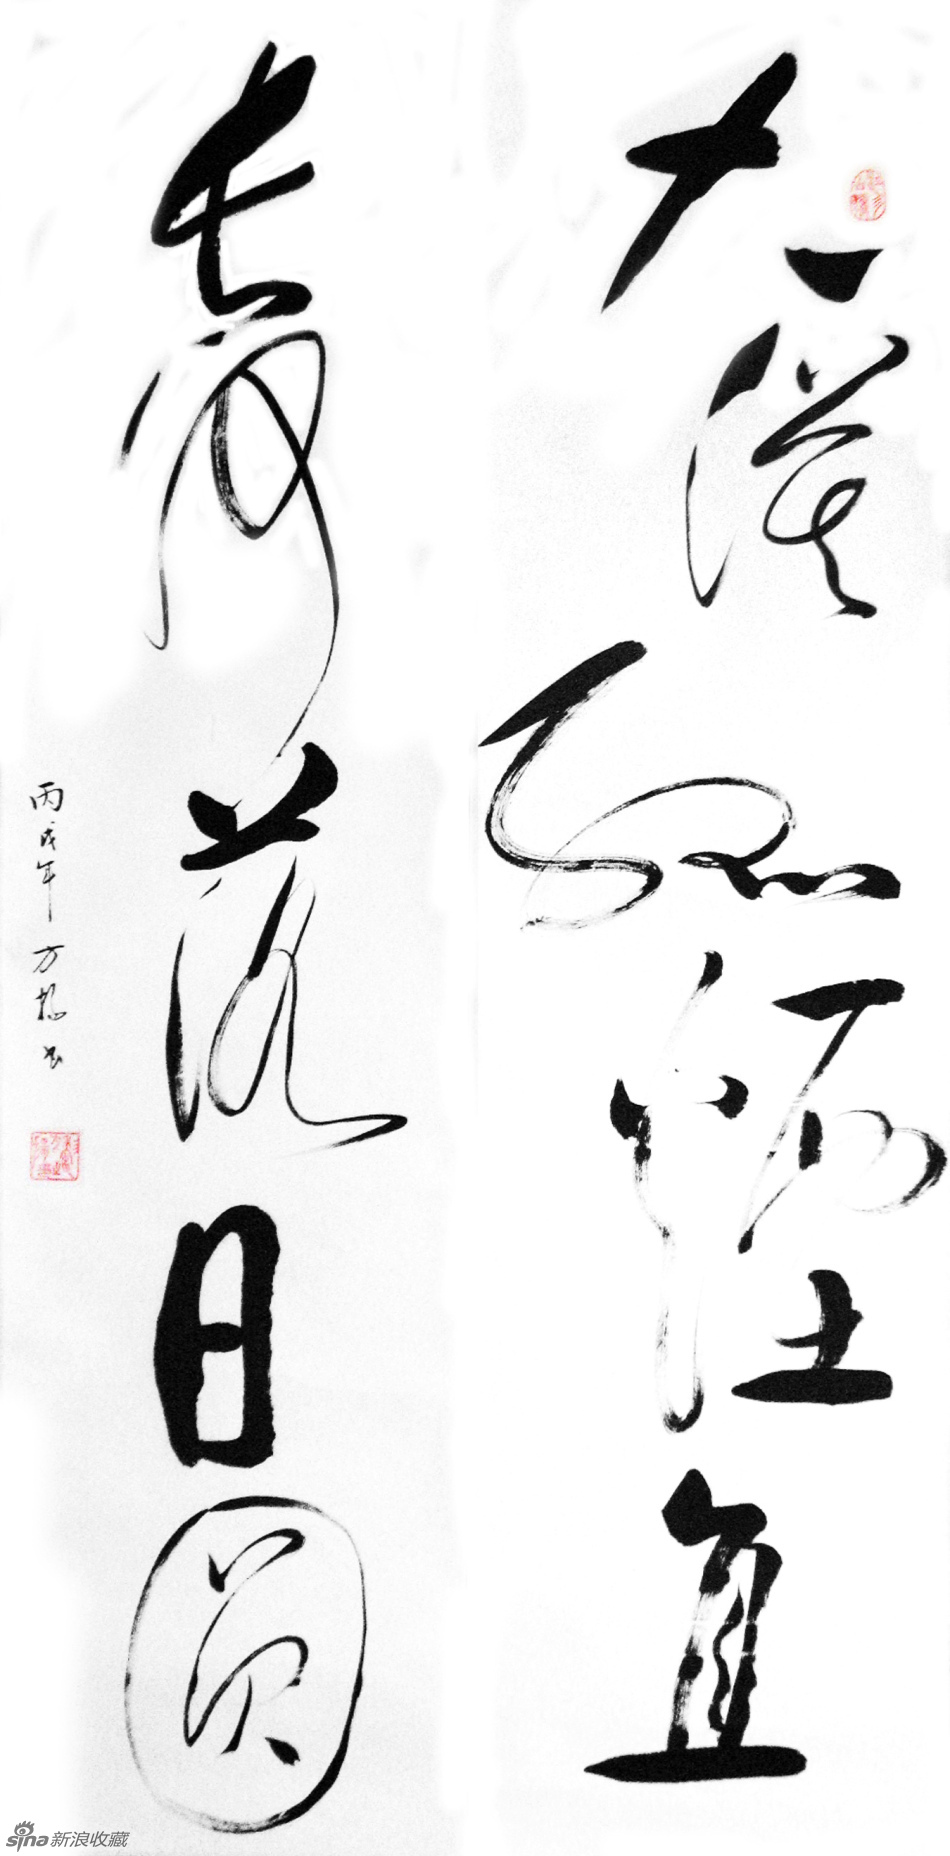 大漠孤烟直
长河落日圆
丙戌年方杨书
sina新浪收藏